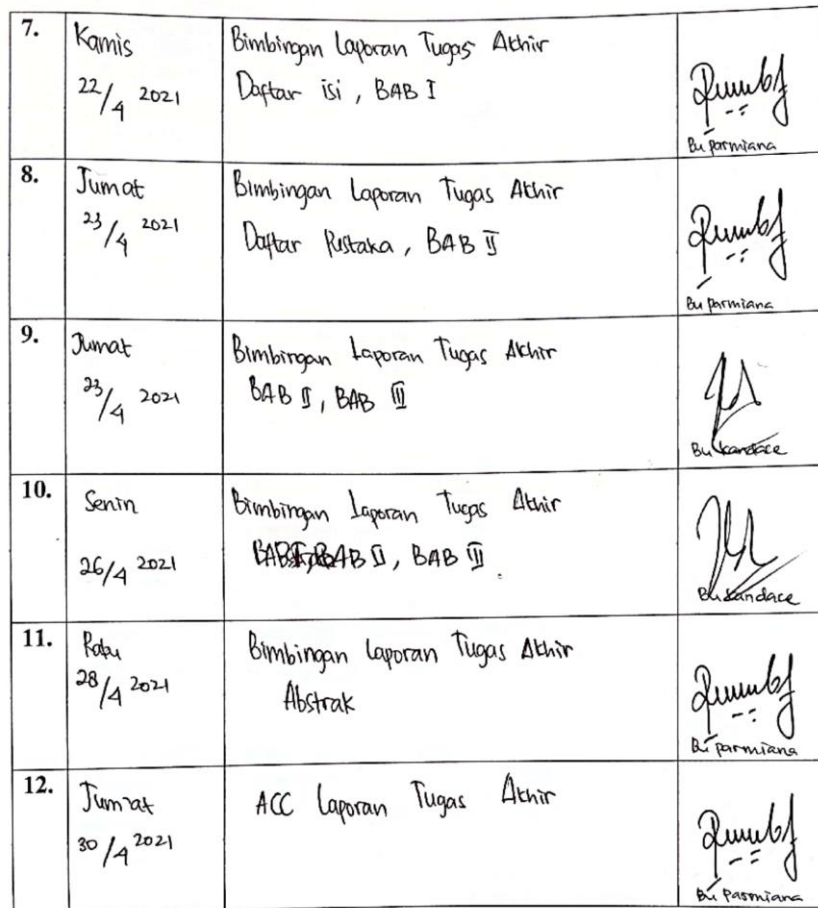 7.
Kamis
22/4 2021
Bimbingan Laporan Tugas Akhir
Daftar isi, BAB I
Bu parmiana
8.
Jumat
23/4 2021
Bimbingan Laporan Tugas Akhir
Daftar Pustaka, BAB II
Bu parmiana
9.
Jumat
23/4 2021
Bimbingan Laporan Tugas Akhir
BAB II, BAB III
Bu kandace
10.
Senin
26/4 2021
Bimbingan Laporan Tugas Akhir
BAB II, BAB III
Bu kandace
11.
Rabu
28/4 2021
Bimbingan Laporan Tugas Akhir
Abstrak
Bu parmiana
12.
Jum'at
30/4 2021
ACC Laporan Tugas Akhir
Bu parmiana